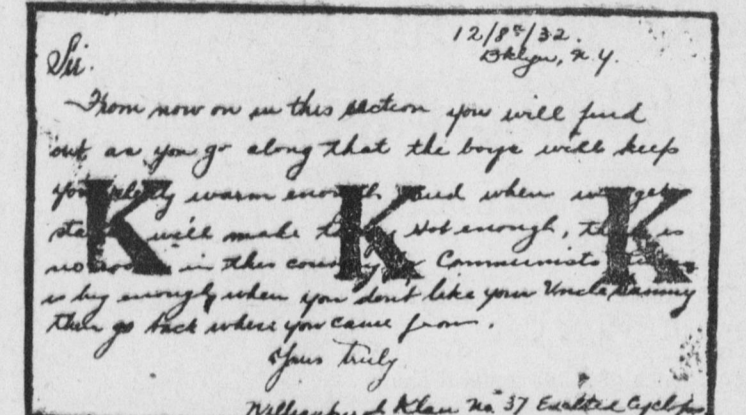 12/8th/32.
Bklyn, N.Y.
Sir.
From now on in this section you will find
out as you go along that the boys will keep
you plenty warm enough. And when we get
started we'll make things hot enough, there is
no room in this country for Communists
is big enough when you don't like your Uncle Sammy
then go back where you came from.
Yours truly
Klan No. 37 Exalted Cyclops
K K K